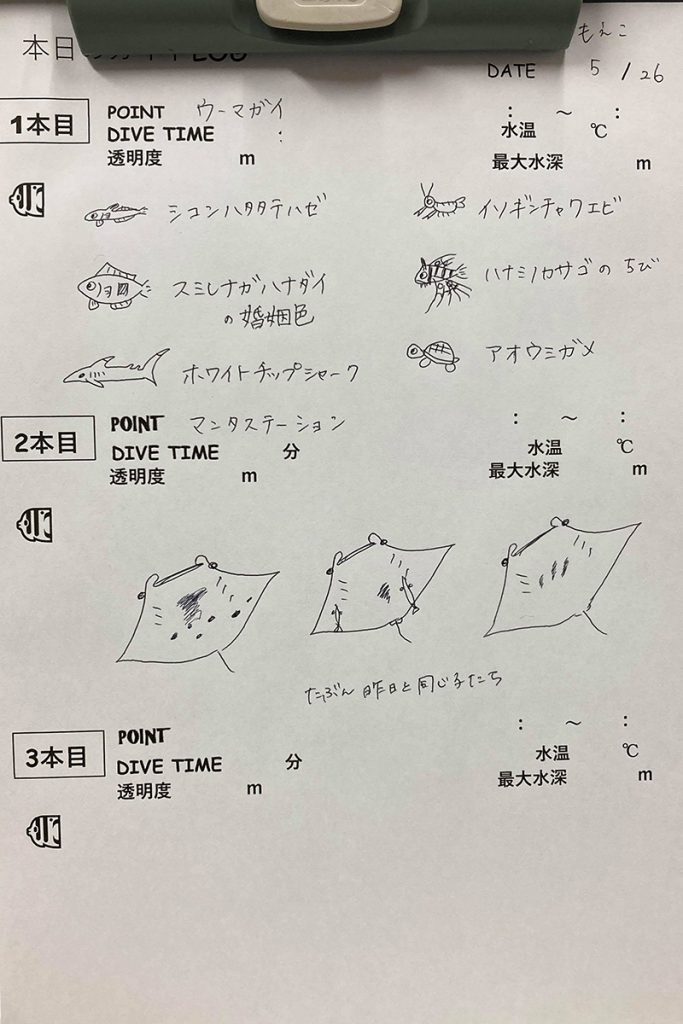 本日のガイドLOG
もえこ
DATE 5 / 26
1本目
POINT ウーマガイ : ～ :
DIVE TIME : 水温 ℃
透明度 m 最大水深 m
シコンハタタテハゼ イソギンチャクエビ
スミレナガハナダイ ハナミノカサゴの ちび
の婚姻色
ホワイトチップシャーク アオウミガメ
2本目
POINT マンタステーション : ～ :
DIVE TIME 分 水温 ℃
透明度 m 最大水深 m
たぶん 昨日と同じ子たち
3本目
POINT : ～ :
DIVE TIME 分 水温 ℃
透明度 m 最大水深 m